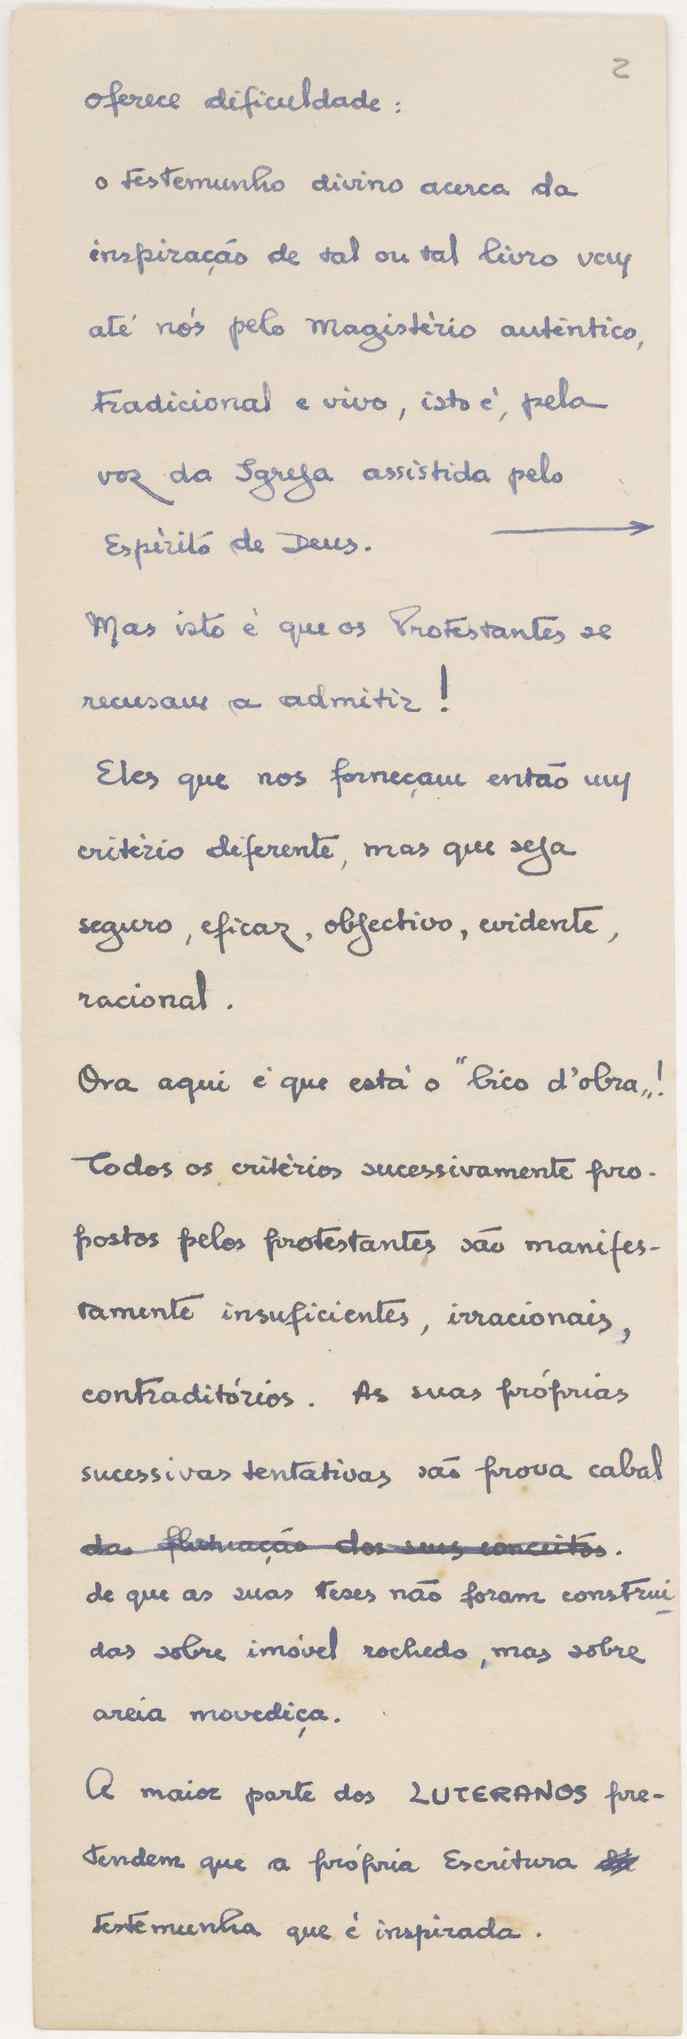 2
oferece dificuldade:
o testemunho divino acerca da
inspiração de tal ou tal livro vem
até nós pelo Magistério autêntico,
tradicional e vivo, isto é, pela
voz da Igreja assistida pelo
Espírito de Deus.
Mas isto é que os Protestantes se
recusam a admitir!
Eles que nos forneçam então um
critério diferente, mas que seja
seguro, eficaz, objectivo, evidente,
racional.
Ora aqui é que está o "bico d'obra„!
Todos os critérios sucessivamente pro-
postos pelos protestantes são manifes-
tamente insuficientes, irracionais,
contraditórios. As suas próprias
sucessivas tentativas são prova cabal
da flutuação dos seus conceitos.
de que as suas teses não foram construi
das sobre imóvel rochedo, mas sobre
areia movediça.
A maior parte dos LUTERANOS pre-
tendem que a própria Escritura
testemunha que é inspirada.